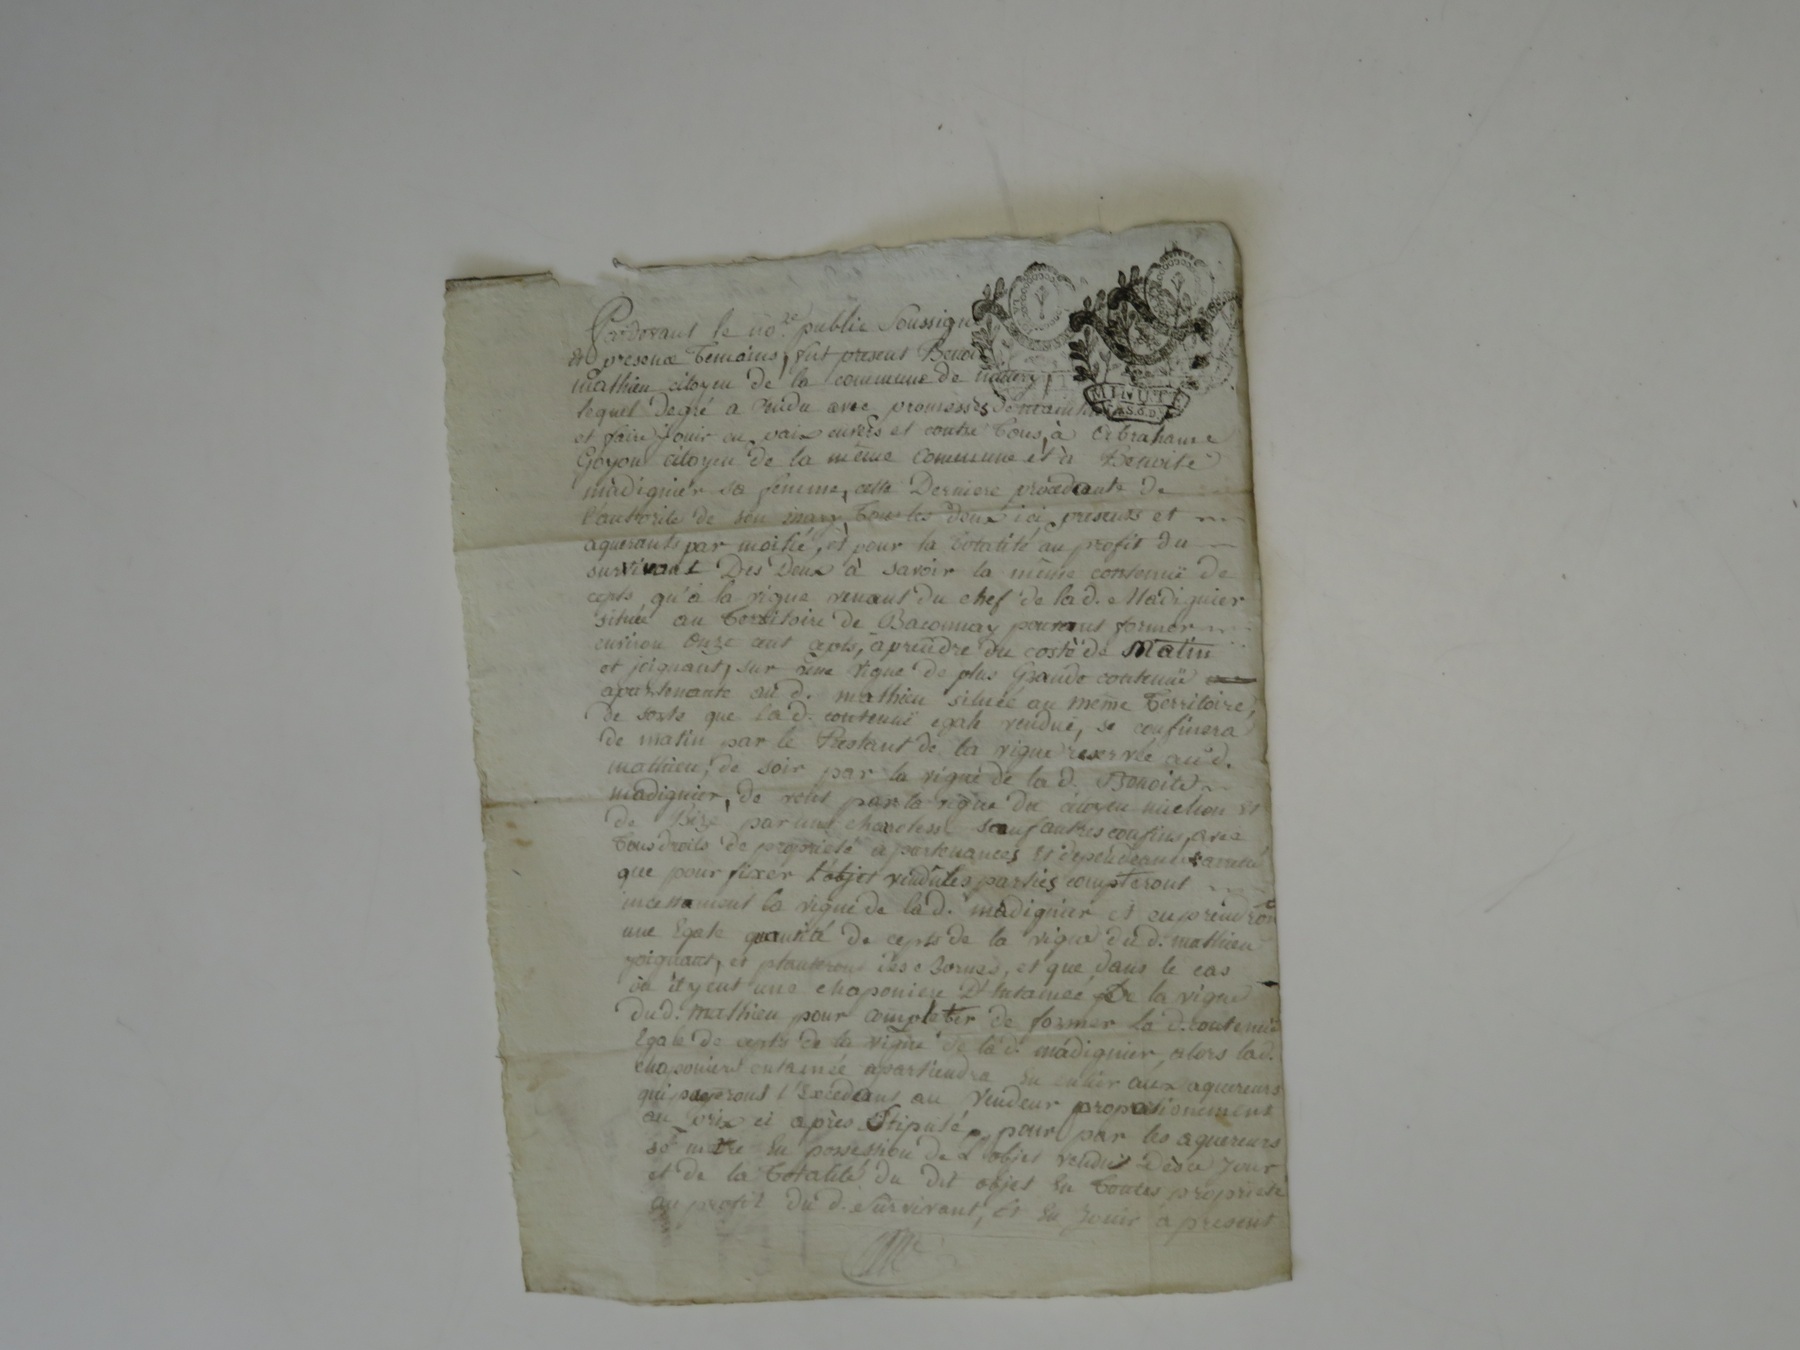 Pardevant le no.re public Soussigné
et presence temoins, fut present Benoit
mathieu citoyen de la commune de
lequel Degré a vendu avec promesses de maintenir
et faire jouir en paix envers et contre tous, à Abrahame
Goyon citoyen de la même commune et à Benoite
madignier sa femme, cette Derniere procedante de
l'autorité de son mary, tous les deux ici presents et
aquerants par moitié, et pour la totalité au profit du
survivant Des Deux à savoir la même contenuë de
cepts qu'à la vigne venant du chef de la d. e Madignier
située au territoire de Baconnay pouvant former
environ onze cent cepts, à prendre du costé de Matin
et joignant, sur une vigne de plus Grande contenuë
apartenante au d. mathieu située au même territoire,
de sorte que la d. contenuë egale venduë, se confinera
de matin par le Restant de la vigne reservée au d.
mathieu, de soir par la vigne de la d. Benoite
madignier, de vent par la vigne du citoyen michon et
de Bize par une sauf autres confins, avec
tous droits de propriété apartenances et dependances arreté
que pour fixer l'objet vendu les parties compteront
incessament la vigne de la d. madignier et en prendront
une Egale quantité de cepts de la vigne du d. mathieu
joignant, et planteront des Bornes, et que dans le cas
où il y eut une chaponiere D'Entamée de la vigne
du d. mathieu pour completter de former la d. contenuë
Egale de cepts de la vigne de la d. madignier, alors la d.
chaponiere entamée apartiendra En entier aux aquereurs
qui payeront l'Excedent au Vendeur proportionement
au prix ci après Stipulé, pour par les aquereurs
se mettre En possession de l'objet vendu Dès ce jour
et de la totalité du dit objet En toutes propriété
au profit du d. Survivant, Et En jouir à present
MINUTE